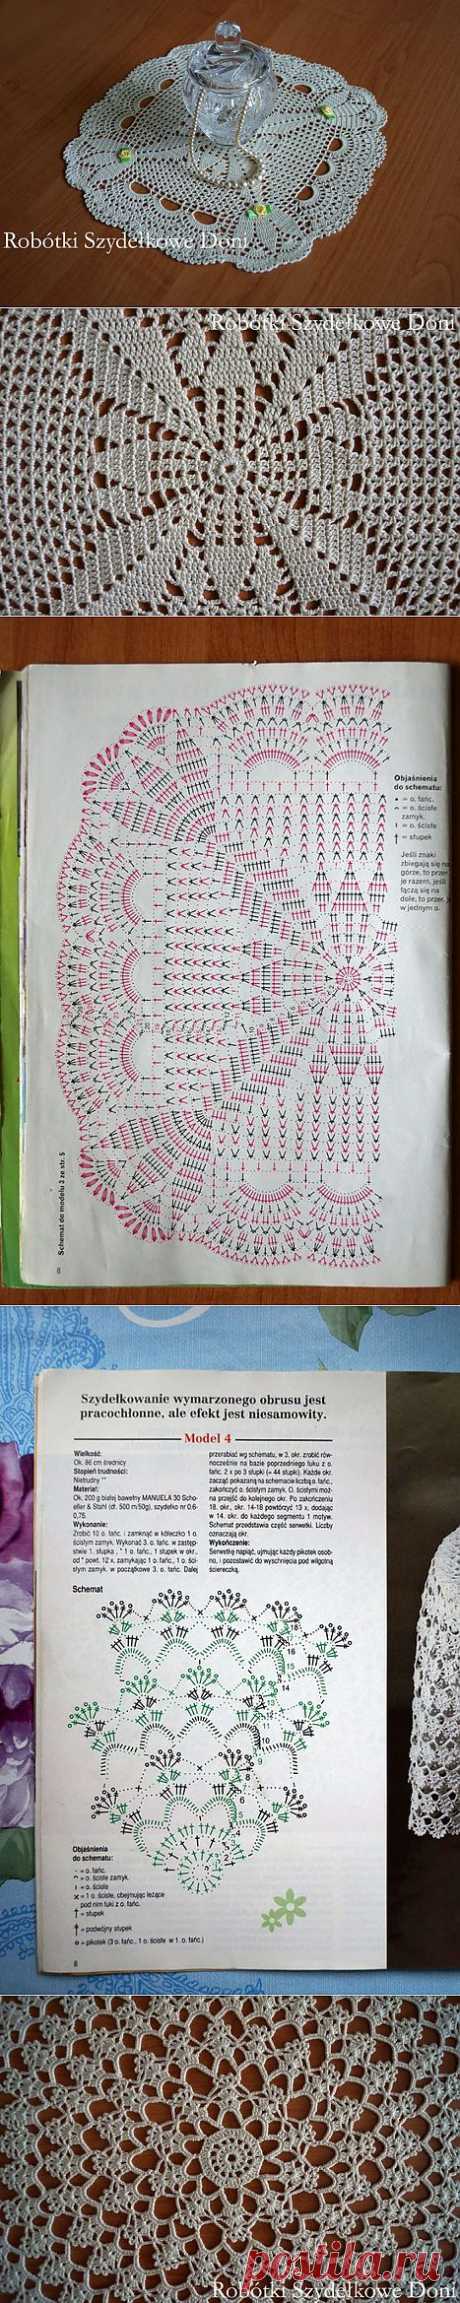 Robótki Szydełkowe Doni
Robótki Szydełkowe Doni
Objaśnienia
do schematu:
= o. łańc.
= o. ścisłe
zamyk.
= o. ścisłe
= słupek
Jeśli znaki
zbiegają się na
górze, to przer.
je razem, jeśli
łączą się na
dole, to przer. je
w jednym o.
Schemat do modelu 3 ze str. 5
8
Szydełkowanie wymarzonego obrusu jest
pracochłonne, ale efekt jest niesamowity.
Model 4
Wielkość:
Ok. 86 cm średnicy
Stopień trudności:
Nietrudny **
Materiał:
Ok. 200 g białej bawełny MANUELA 30 Scho-
eller & Stahl (dł. 500 m/50g), szydełko nr 0.6-
0,75.
Wykonanie:
Zrobić 10 o. łańc. i zamknąć w kółeczko 1 o.
ścisłym zamyk. Wykonać 3 o. łańc. w zastęp-
stwie 1. słupka, * 1 o. łańc., 1 słupek w okr.,
od * powt. 12 x, zamykając 1 o. łańc., 1 o. ści-
słym zamyk. w początkowe 3. o. łańc. Dalej
przerabiać wg schematu, w 3. okr. zrobić rów-
nocześnie na bazie poprzedniego łuku z o.
łańc. 2 x po 3 słupki (= 44 słupki). Każde okr.
zacząć pokazaną na schemacie liczbą o. łańc.,
zakończyć o. ścisłym zamyk. O. ścisłymi moż-
na przejść do kolejnego okr. Po zakończeniu
18. okr., okr. 14-18 powtórzyć 13 x, dodając
w 14. okr. do każdego segmentu 1 motyw.
Schemat przedstawia część serwetki. Liczby
oznaczają okr.
Wykończenie:
Serwetkę napiąć, ujmując każdy pikotek osob-
no, i pozostawić do wyschnięcia pod wilgotną
ściereczką.
Schemat
Objaśnienia
do schematu:
- = o. łańc.
= o. ścisłe zamyk.
= o. ścisłe
x = 1 o. ścisłe, obejmując leżące
pod nim łuki z o. łańc.
= słupek
= podwójny słupek
= pikotek (3 o. łańc., 1 o. ścisłe w 1. o. łańc.)
8
postila.ru
Robótki Szydełkowe Doni